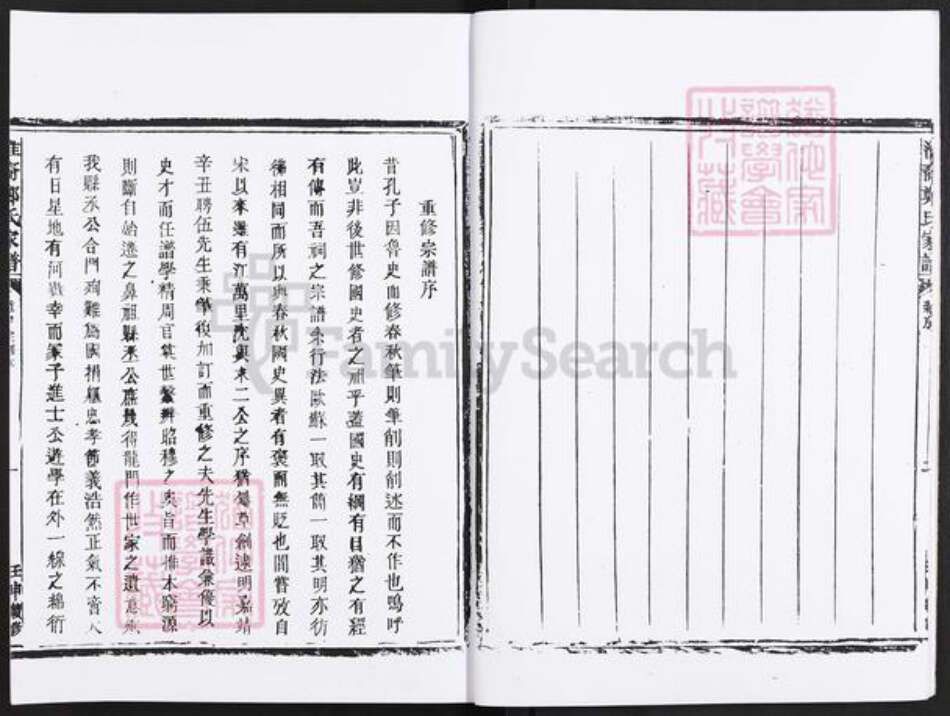 重修宗譜序
昔孔子因魯史而修春秋筆則筆削則削述而不作也嗚呼
此豈非後世修國史者之祖乎蓋國史有綱有目猶之有經
有傳而吾祠之宗譜來行法歐蘇一取其簡一取其明亦彷
彿相同而所以與春秋國史異者有褒而無貶也間嘗攷自
宋以來譜有江萬里沈與求二公之序猶屬草創逮明嘉靖
辛丑聘伍先生秉筆復加訂而重修之夫先生學識兼優以
史才而任譜學精周官奠世繫辨昭穆之奧旨而推本窮源
則斷自始遷之鼻祖縣丞公庶幾得龍門作世家之遺意
我縣丞公合門殉難為國捐軀忠孝節義浩然正氣不啻天
有日星地有河嶽幸而冡子進士公遊學在外一線之綿衍
鄭氏家譜
壬申續修
鄭氏家譜
FamilySearch